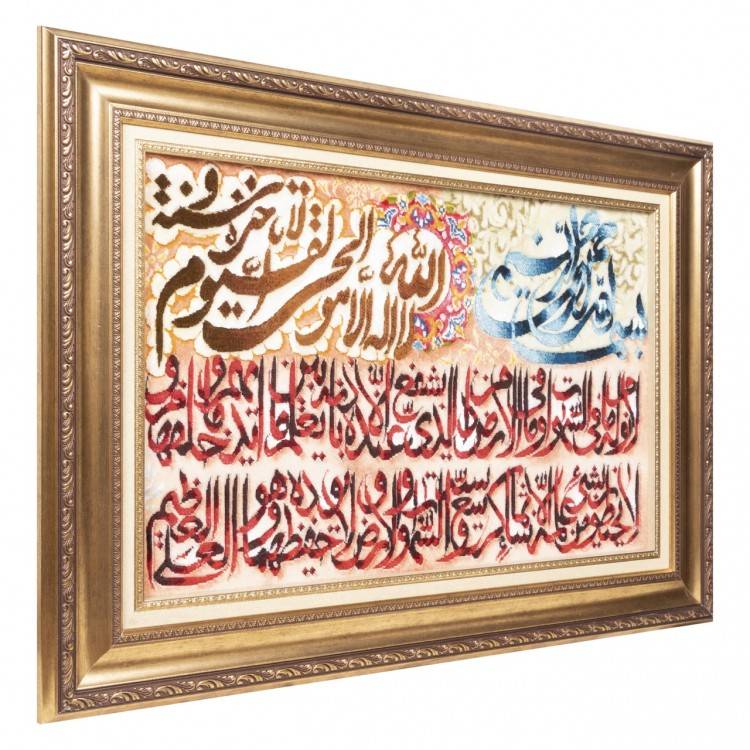 بسم الله الرحمن الرحيم
الله لا اله الا هو الحي القيوم لا تاخذه سنة و
لا نوم له ما في السموات و ما في الارض من ذا الذي يشفع عنده الا باذنه يعلم ما بين ايديهم و ما خلفهم و
لا يحيطون بشئ من علمه الا بما شاء وسع كرسيه السموات و الارض و لا يوده حفظهما و هو العلي العظيم